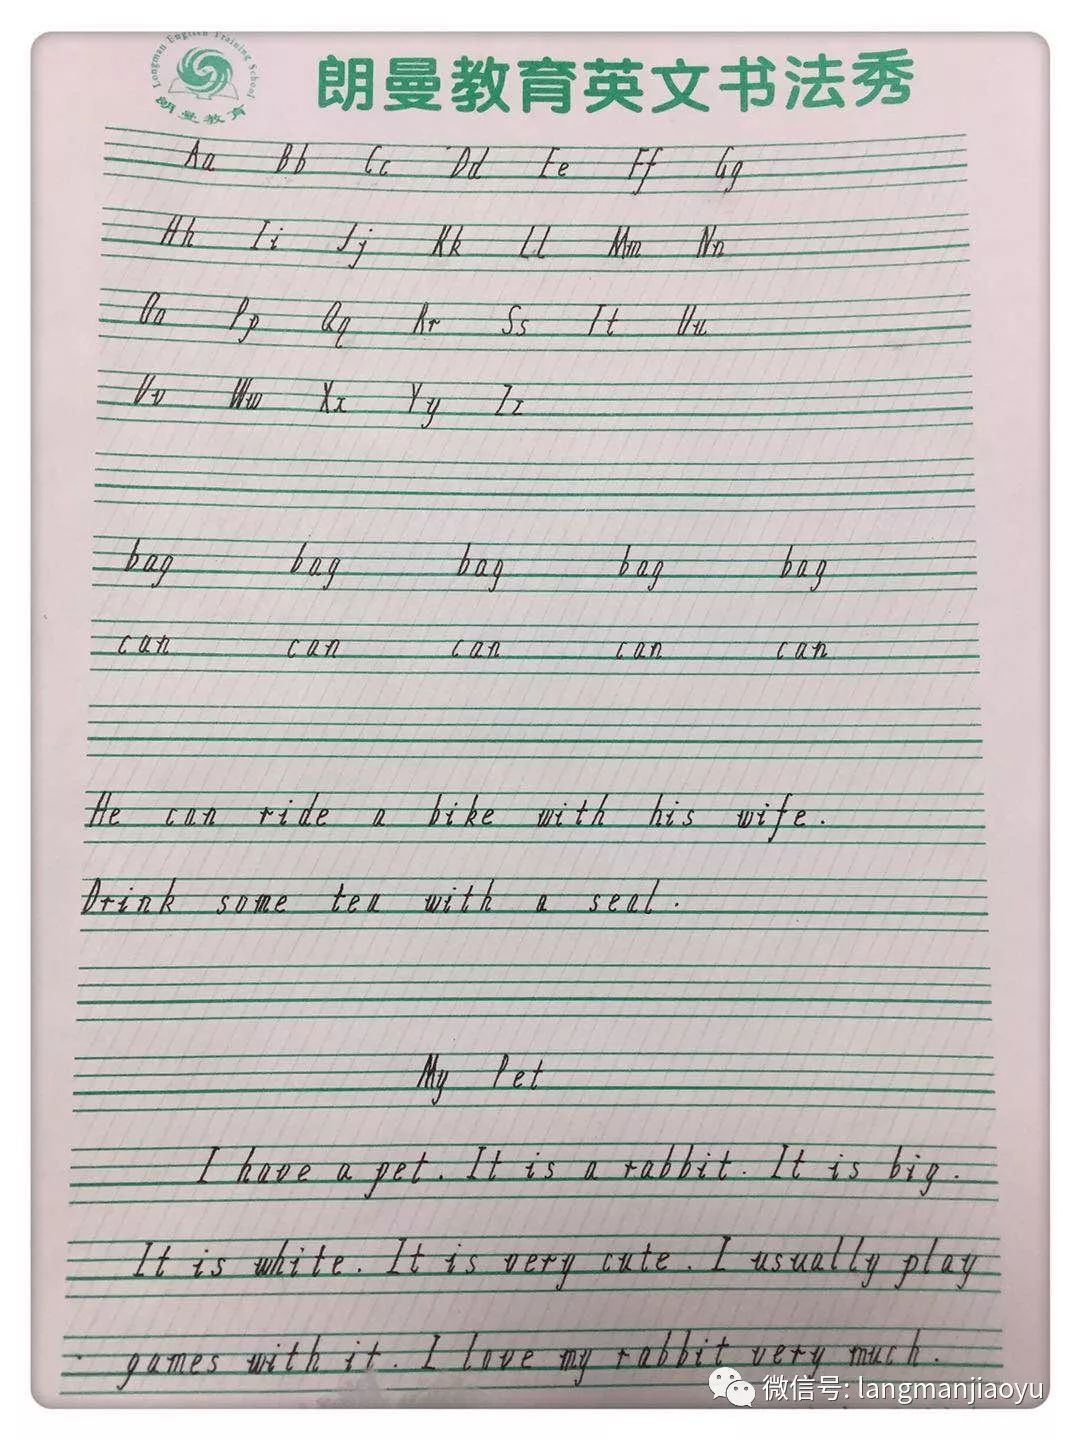 Longman English Training School
朗曼教育
朗曼教育英文书法秀
Aa Bb Cc Dd Ee Ff Gg
Hh Ii Jj Kk Ll Mm Nn
Oo Pp Qq Rr Ss Tt Uu
Vv Ww Xx Yy Zz
bag bag bag bag bag
can can can can can
He can ride a bike with his wife.
Drink some tea with a seal.
My Pet
I have a pet. It is a rabbit. It is big.
It is white. It is very cute. I usually play
games with it. I love my rabbit very much.
微信号: langmanjiaoyu